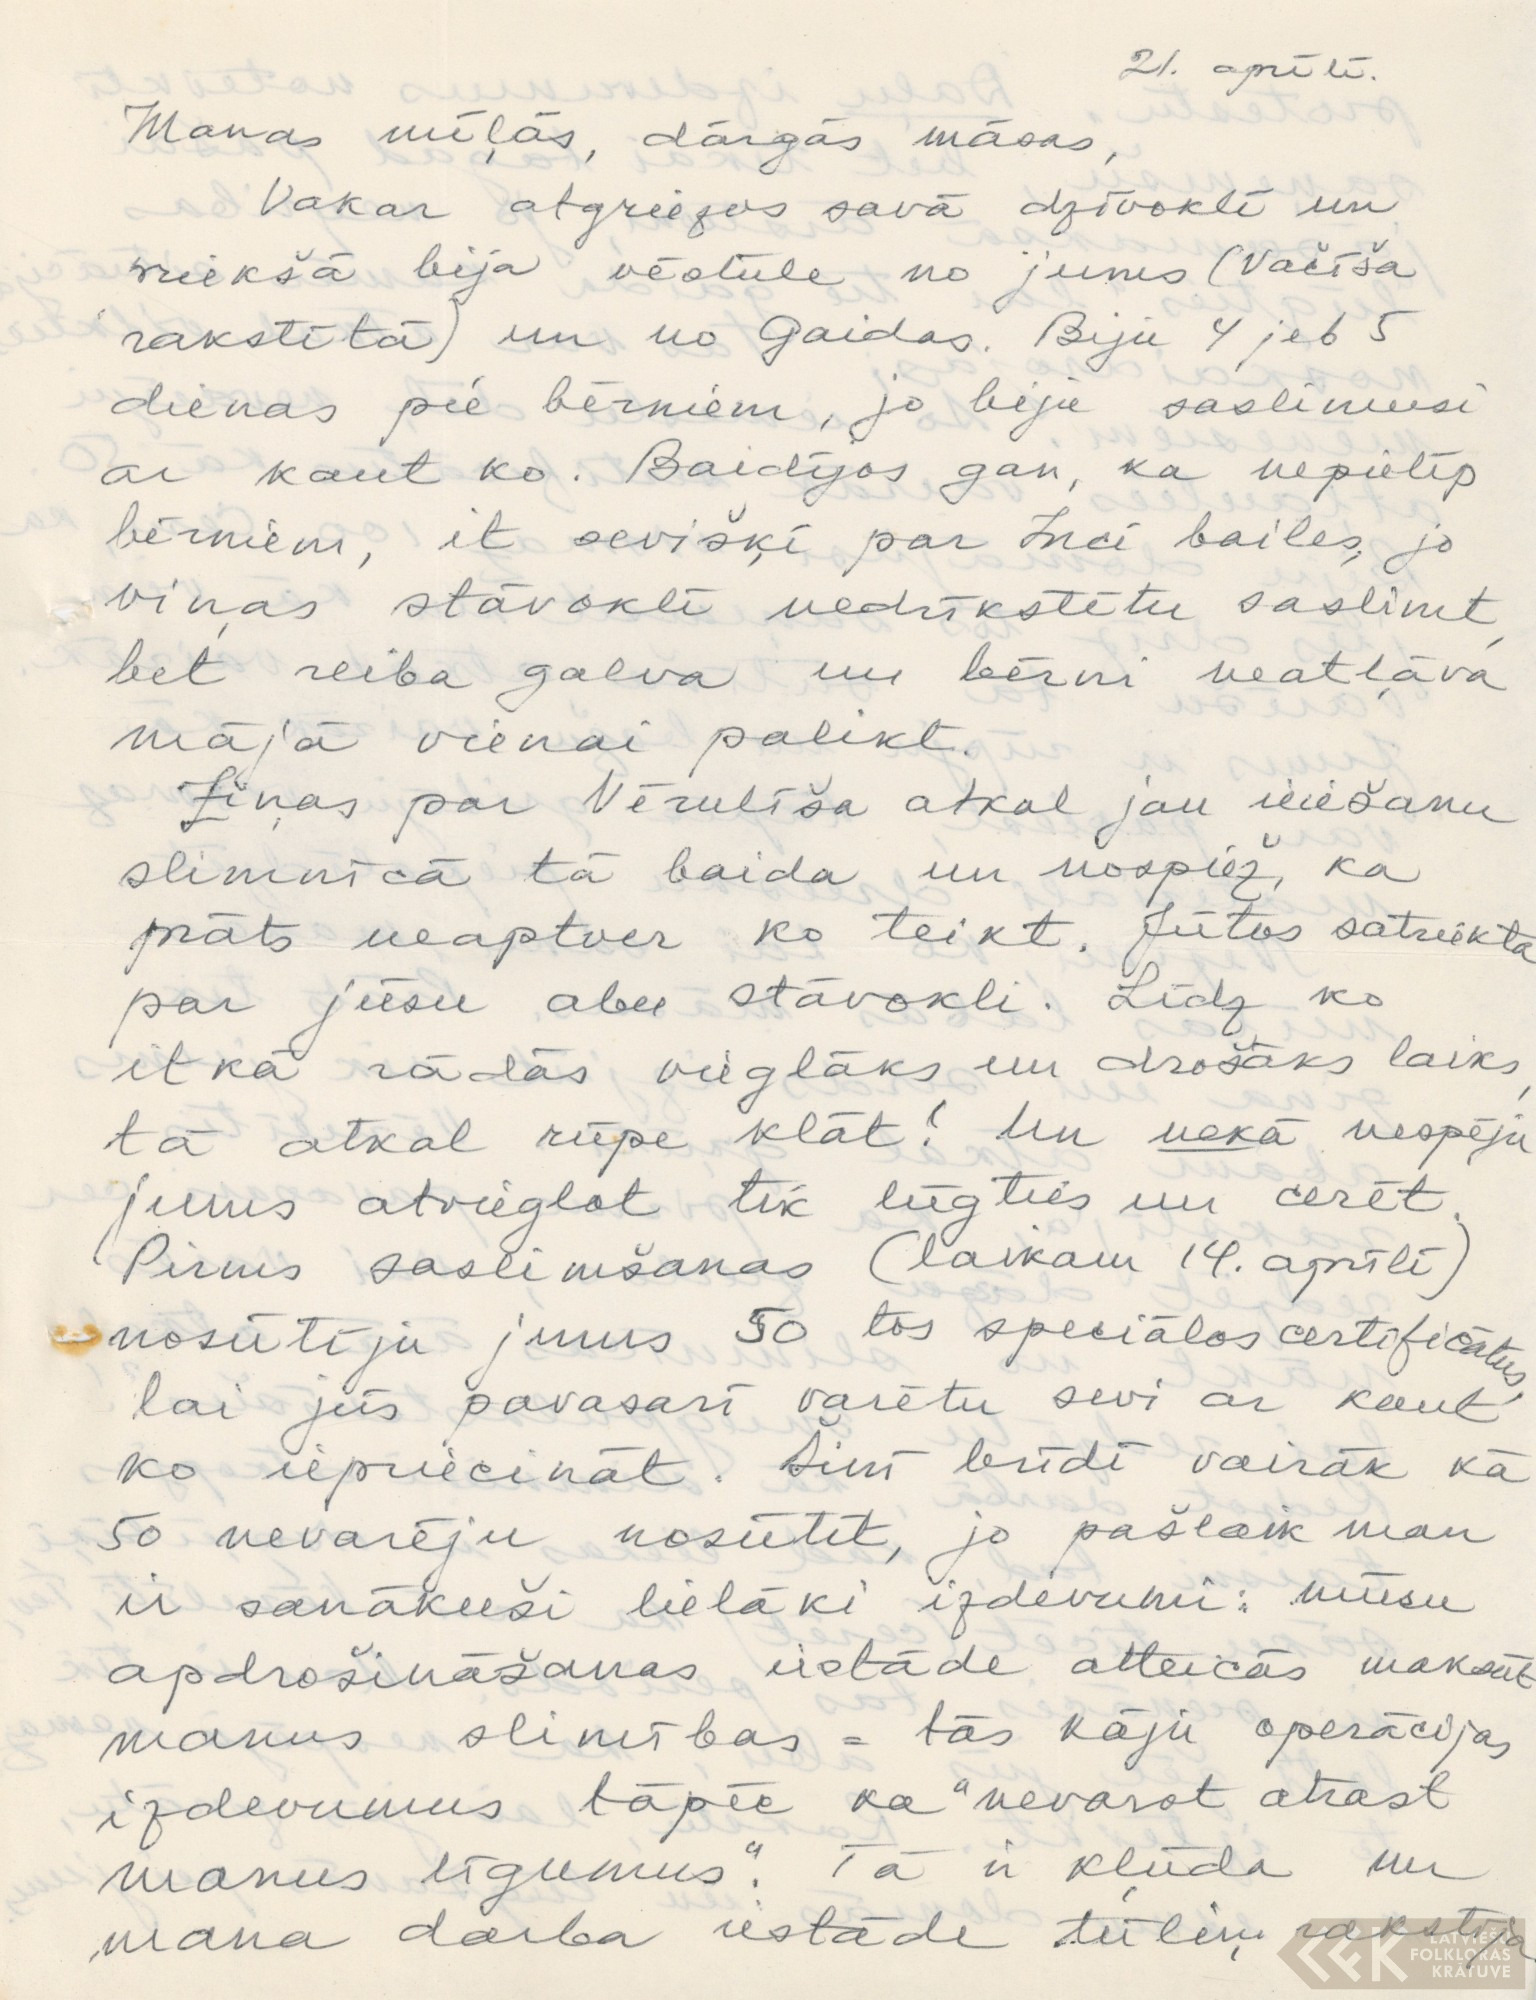 21. aprīlī.
Manas mīļās, dārgās māsas,
Vakar atgriezos savā dzīvoklī un
priekšā bija vēstule no jums (Vačīša
rakstītā) un no Gaidas. Biju 4 jeb 5
dienas pie bērniem, jo biju saslimusi
ar kaut ko. Baidījos gan, ka nepielīp
bērniem, it sevišķi par Inci bailes, jo
viņas stāvoklī nedrīkstētu saslimt,
bet reiba galva un bērni neatļāva
mājā vienai palikt.
Ziņas par Vērulīša atkal jau iiešanu
slimnīcā tā baida un nospiež, ka
prāts neaptver ko teikt. Jūtos satriekta
par jūsu abu stāvokli. Līdz ko
itkā rādās vieglāks un drošāks laiks,
tā atkal rūpe klāt! Un nekā nespēju
jums atvieglot tik lūgties un cerēt.
Pirms saslimšanas (laikam 14. aprīlī)
nosūtīju jums 50 tos speciālos certificātus,
lai jūs pavasarī varētu sevi ar kaut
ko iepriecināt. Šinī brīdī vairāk kā
50 nevarēju nosūtīt, jo pašlaik man
ir sanākuši lielāki izdevumi: mūsu
apdrošināšanas iestāde atteicās maksāt
manus slimības = tās kāju operācijas
izdevumus tāpēc ka "nevarot atrast
manus līgumus". Tā ir kļūda un
mana darba iestāde tūliņ rakstīja
LATVIEŠU
FOLKLORAS
KRĀTUVE